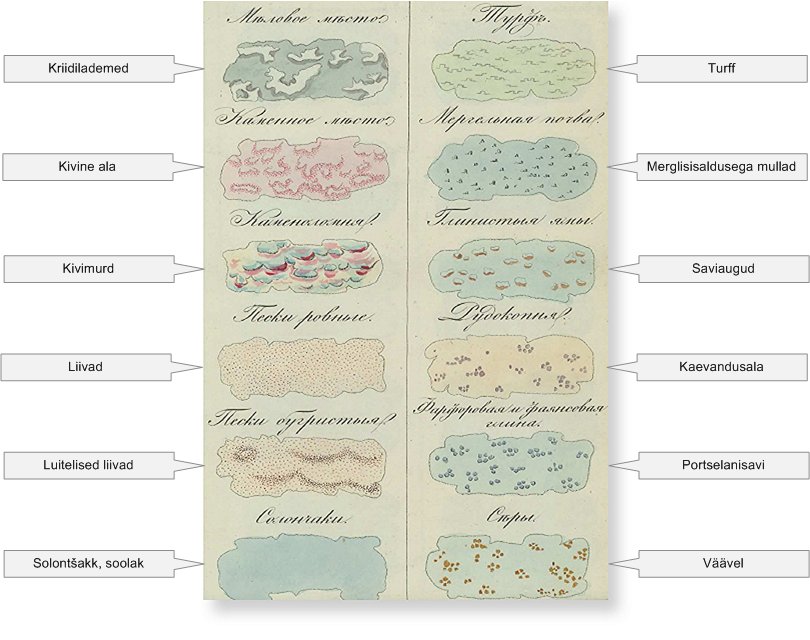 Мѣловое мѣсто.
Турфъ.
Kriidilademed
Turff
Каменное мѣсто.
Мергельная почва.
Kivine ala
Merglisisaldusega mullad
Каменоломня.
Глинистыя ямы.
Kivimurd
Saviaugud
Пески ровные.
Рудокопня.
Liivad
Kaevandusala
Пески бугристыя.
Фарфоровая и фаянсовая
глина.
Luitelised liivad
Portselanisavi
Солончаки.
Сѣры.
Solontšakk, soolak
Väävel